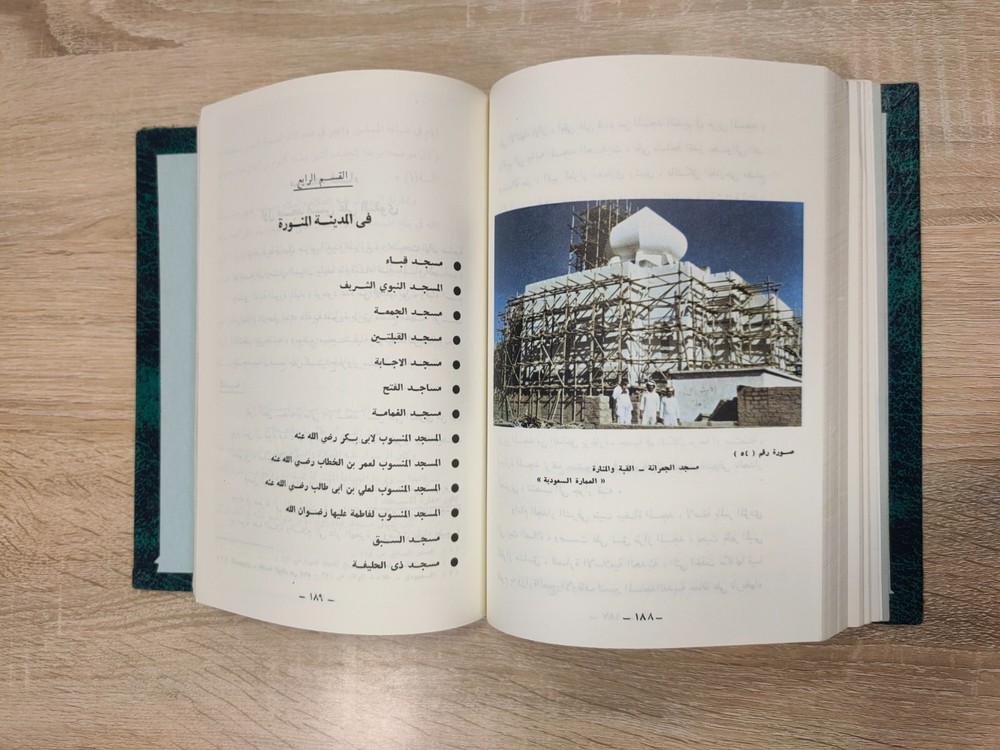 صورة رقم ( ٥٤ )
مسجد الجعرانة – القبة والمنارة
« العمارة السعودية »
– ١٨٨ –
القسم الرابع
فى المدينة المنورة
● مسجد قباء
● المسجد النبوي الشريف
● مسجد الجمعة
● مسجد القبلتين
● مسجد الاجابة
● مساجد الفتح
● مسجد الغمامة
● المسجد المنسوب لابى بكر رضي الله عنه
● المسجد المنسوب لعمر بن الخطاب رضي الله عنه
● المسجد المنسوب لعلي بن ابى طالب رضي الله عنه
● المسجد المنسوب لفاطمة عليها رضوان الله
● مسجد السبق
● مسجد ذى الحليفة
– ١٨٩ –